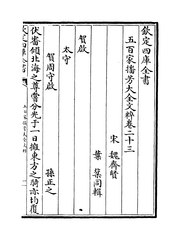 欽定四庫全書
五百家播芳大全文粹卷二十三
宋 魏齊賢
葉棻同輯
賀啟
太守
賀周守啟 孫正之
伏審領北海之尊嘗分光于一日擁東方之騎亦均復
欽定四庫全書